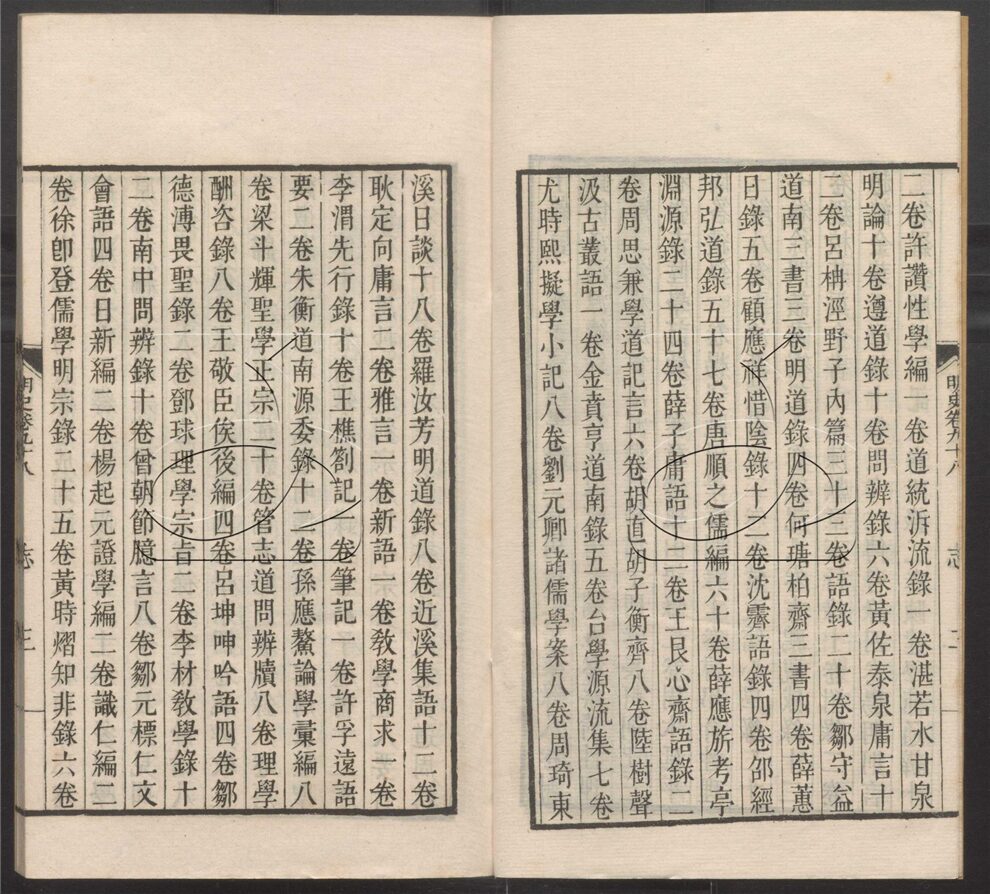 二卷許讚性學編一卷道統泝流錄一卷湛若水甘泉
明論十卷遵道錄十卷問辨錄六卷黃佐泰泉庸言十
二卷呂柟涇野子內篇三十三卷語錄二十卷鄒守益
道南三書三卷明道錄四卷何瑭柏齋三書四卷薛蕙
日錄五卷顧應祥惜陰錄十二卷沈霽語錄四卷邵經
邦弘道錄五十七卷唐順之儒編六十卷薛應旂考亭
淵源錄二十四卷薛子庸語十二卷王艮心齋語錄二
卷周思兼學道記言六卷胡直胡子衡齊八卷陸樹聲
汲古叢語一卷金賁亨道南錄五卷台學源流集七卷
尤時熙擬學小記八卷劉元卿諸儒學案八卷周琦東
明史卷九十八
志
溪日談十八卷羅汝芳明道錄八卷近溪集語十二卷
耿定向庸言二卷雅言一卷新語一卷敎學商求一卷
李渭先行錄十卷王樵劄記一卷筆記一卷許孚遠語
要二卷朱衡道南源委錄十二卷孫應鰲論學彙編八
卷梁斗輝聖學正宗二十卷管志道問辨牘八卷理學
酬咨錄八卷王敬臣俟後編四卷呂坤呻吟語四卷鄒
德溥畏聖錄二卷鄧球理學宗旨二卷李材敎學錄十
二卷南中問辨錄十卷曾朝節臆言八卷鄒元標仁文
會語四卷日新編二卷楊起元證學編二卷識仁編二
卷徐卽登儒學明宗錄二十五卷黃時熠知非錄六卷
明史卷九十八
志
三